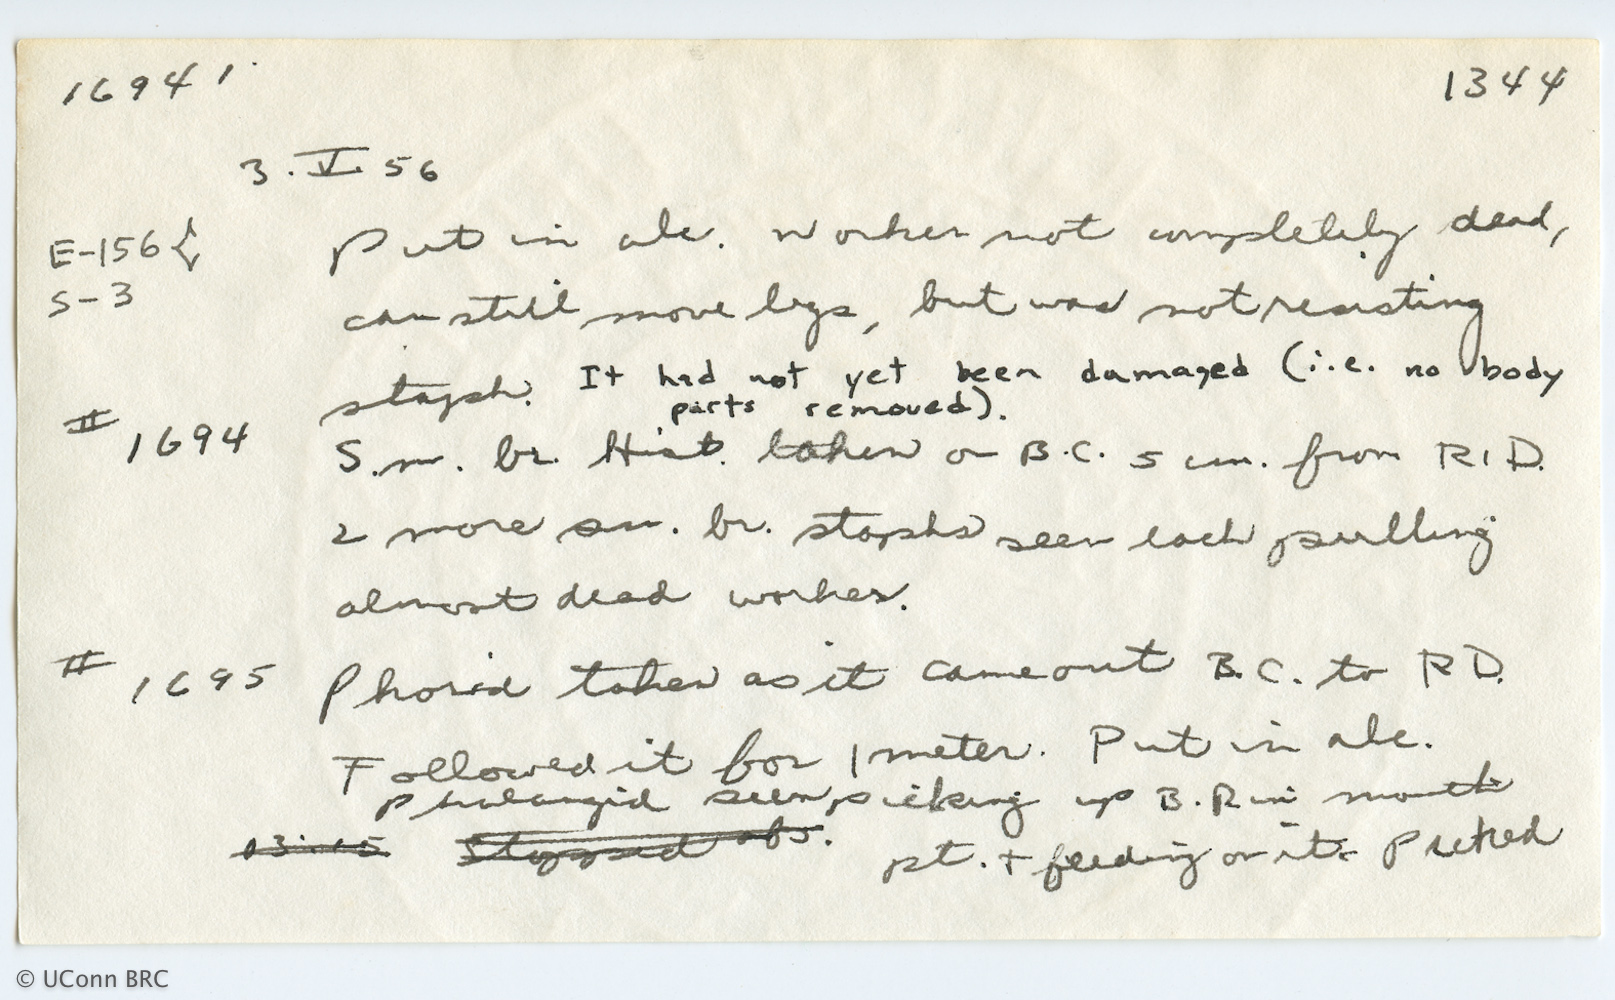 16941.
1344
3.V.56
E-156 {
S-3
Put in alc. Worker not completely dead,
can still move legs, but was not resisting
staph. It had not yet been damaged (i.e. no body
parts removed).
# 1694
S.m. br. Hist. taken on B.C. 5 cm. from R.D.
2 more sm. br. staphs seen each pulling
almost dead worker.
# 1695 Phorid taken as it came out B.C. to R.D.
Followed it for 1 meter. Put in alc.
Phalangid seen picking up B.R in mouth
13:15 Stopped obs.
pt. + feeding on it. Picked
© UConn BRC